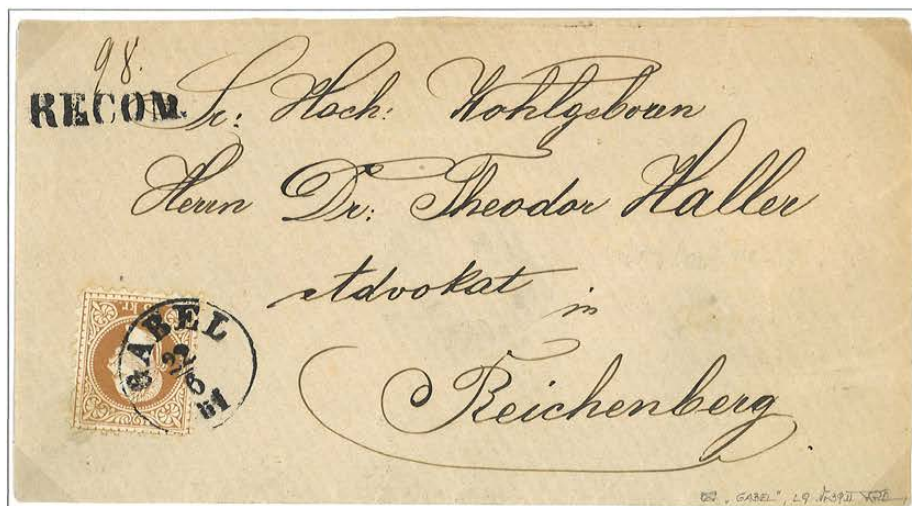 98.
RECOM.
Sr: Hoch: Wohlgeborn
Herrn Dr: Theodor Haller
Advokat
in
Reichenberg
GABEL
22
6
„GABEL“,